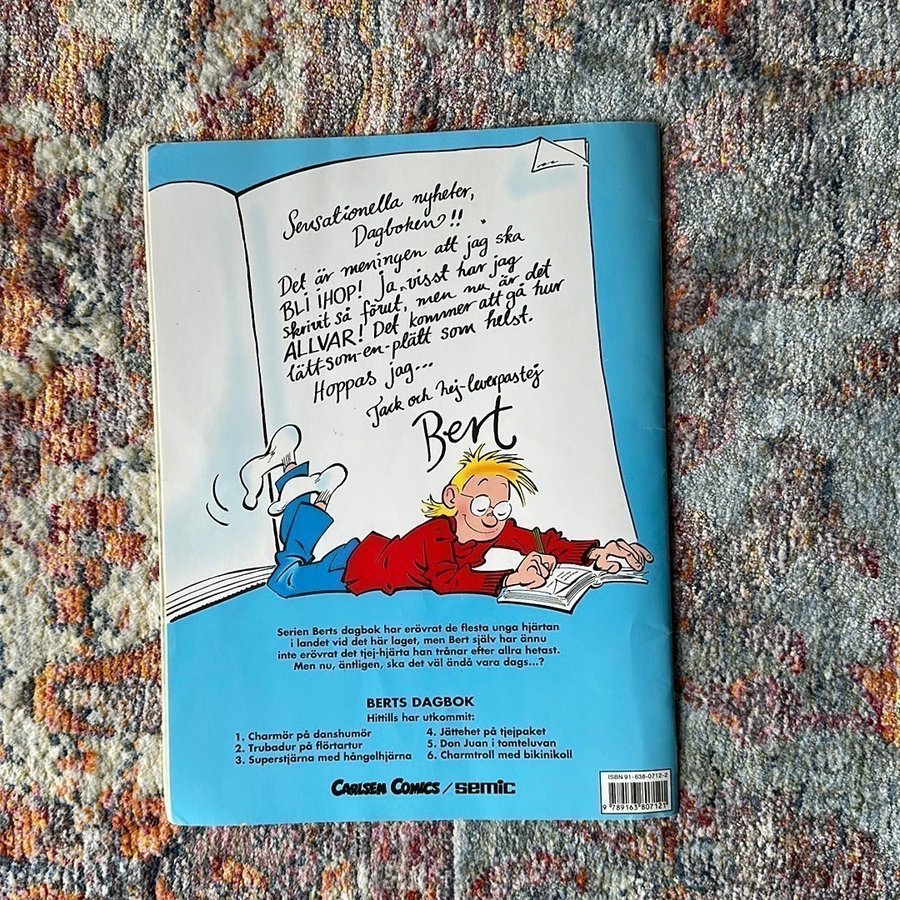 Sensationella nyheter,
Dagboken!!
Det är meningen att jag ska
BLI IHOP! Ja, visst har jag
skrivit så förut, men nu är det
ALLVAR! Det kommer att gå hur
lätt-som-en-plätt som helst.
Hoppas jag...
Tack och hej-leverpastej
Bert
Serien Berts dagbok har erövrat de flesta unga hjärtan
i landet vid det här laget, men Bert själv har ännu
inte erövrat det tjej-hjärta han trånar efter allra hetast.
Men nu, äntligen, ska det väl ändå vara dags...?
BERTS DAGBOK
Hittills har utkommit:
1. Charmör på danshumör
2. Trubadur på flörtartur
3. Superstjärna med hångelhjärna
4. Jättehet på tjejpaket
5. Don Juan i tomteluvan
6. Charmtroll med bikinikoll
CARLSEN COMICS / semic
ISBN 91-638-0712-2
9 789163 807121